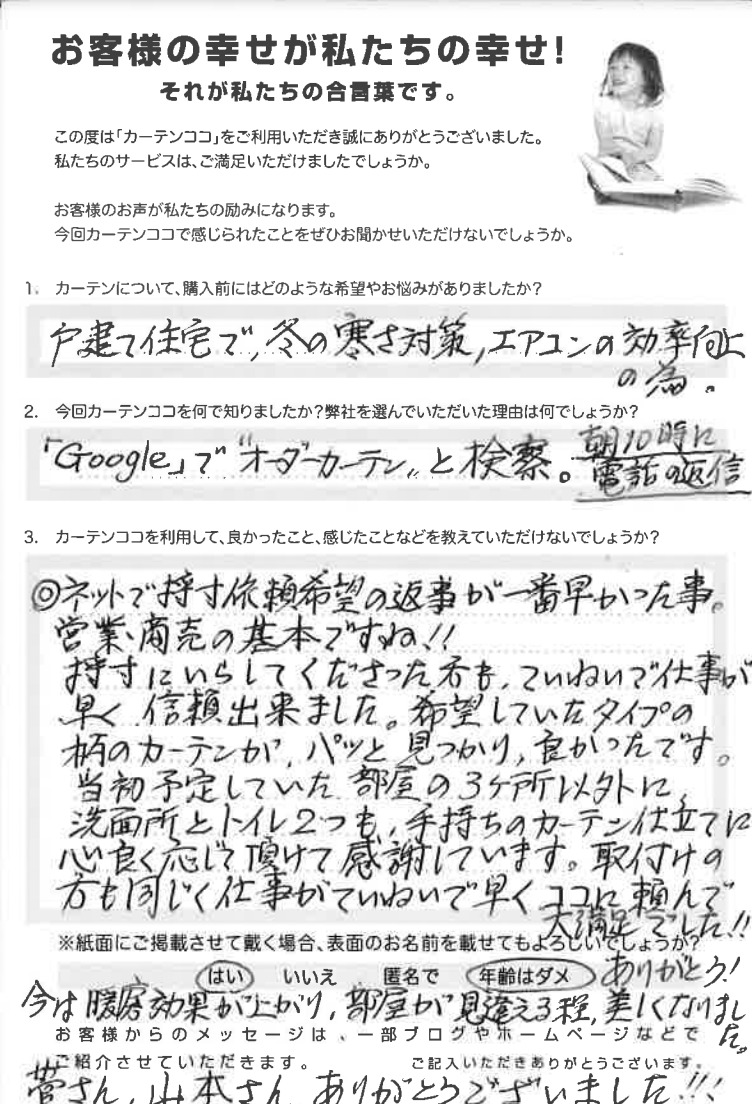 お客様の幸せが私たちの幸せ!
それが私たちの合言葉です。
この度は「カーテンココ」をご利用いただき誠にありがとうございました。
私たちのサービスは、ご満足いただけましたでしょうか。
お客様のお声が私たちの励みになります。
今回カーテンココで感じられたことをぜひお聞かせいただけないでしょうか。
1. カーテンについて、購入前にはどのような希望やお悩みがありましたか?
戸建て住宅で,冬の寒さ対策,エアコンの効率向上
の為。
2. 今回カーテンココを何で知りましたか?弊社を選んでいただいた理由は何でしょうか?
「Google」で“オーダーカーテン„と検察。
朝10時に
電話の返信
3. カーテンココを利用して、良かったこと、感じたことなどを教えていただけないでしょうか?
◎ネットで採寸依頼希望の返事が一番早かった事。
営業、商売の基本ですね!!
採寸にいらしてくださった方も、ていねいで仕事が
早く信頼出来ました。希望していたタイプの
柄のカーテンが、パッと見つかり,良かったです。
当初予定していた部屋の3ヶ所以外に,
洗面所とトイレ2つも,手持ちのカーテン仕立てに
心良く応じて頂けて感謝しています。取付けの
方も同じく仕事がていねいで早くココに頼んで
大満足でした!!
※紙面にご掲載させて戴く場合、表面のお名前を載せてもよろしいでしょうか?
はい いいえ 匿名で 年齢はダメ ありがとう!
今は暖房効果が上がり,部屋が見違える程,美しくなりまし
た。
お客様からのメッセージは、一部ブログやホームページなどで
ご紹介させていただきます。 ご記入いただきありがとうございます。
菅さん,山本さんありがとうございました!!!